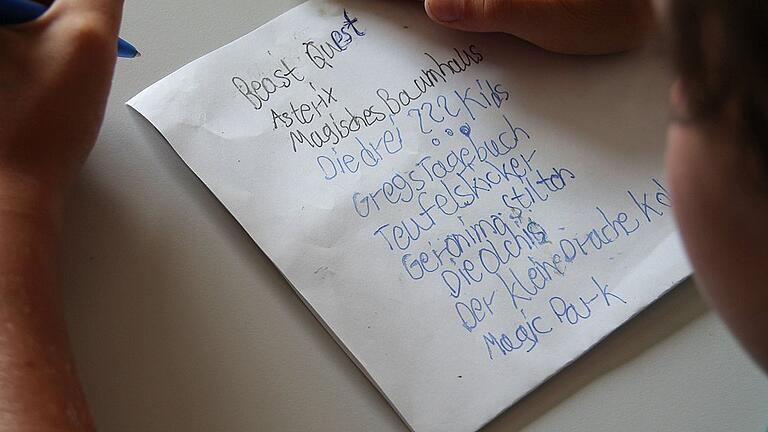 Beast Quest
Asterix
Magisches Baumhaus
Die drei ??? Kids
Gregs Tagebuch
Teufelskicker
Geronimo Stilton
Die Olchis
Der kleine Drache Ko
Magic Park